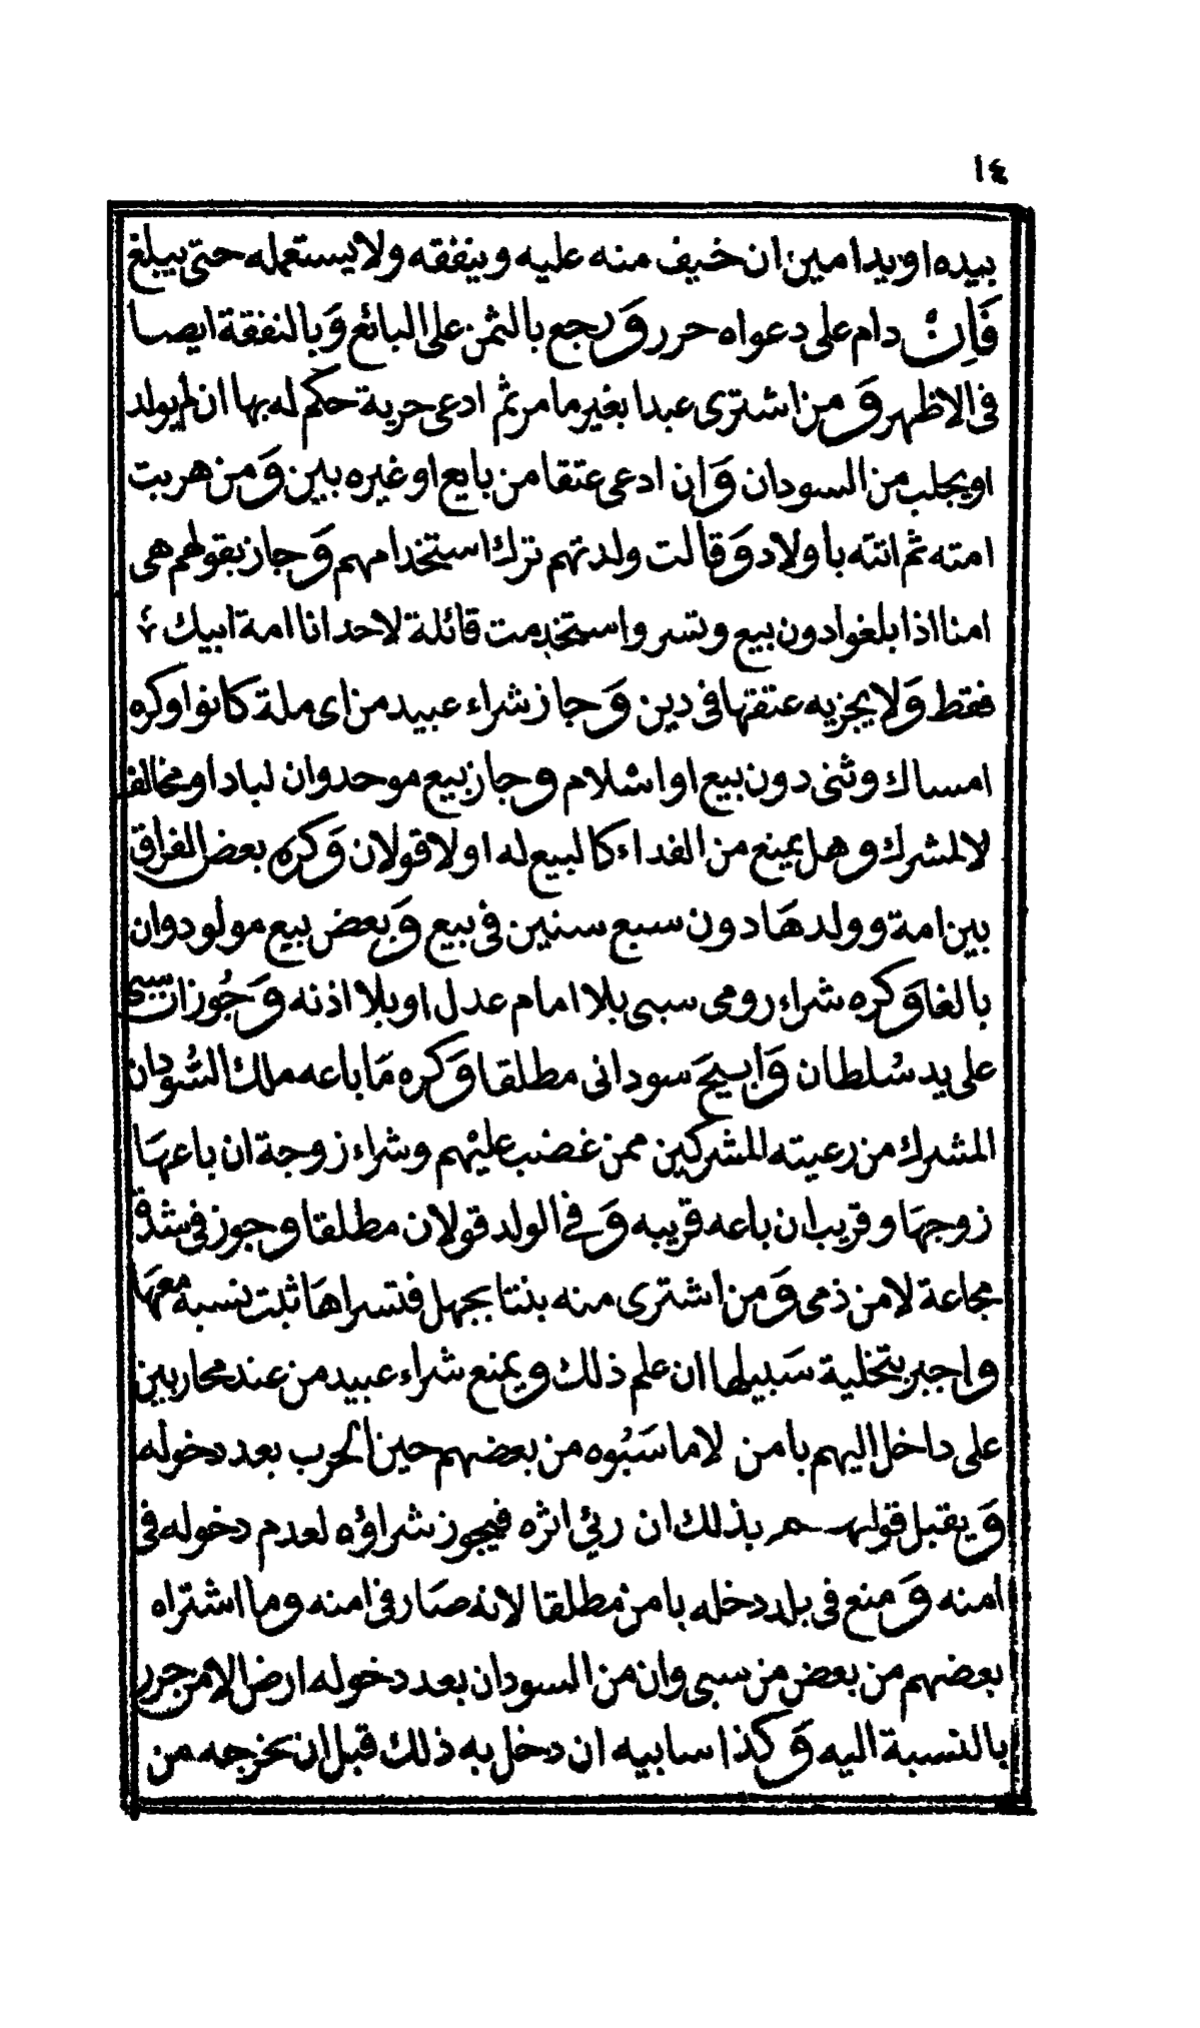 ١٤
بيده او يد امين ان خيف منه عليه وينفقه ولا يستعمله حتى يبلغ
فَاِنْ دام على دعواه حرر وَرجع بالثمن على البائع وَبالنفقة ايضا
فى الاظهر وَمن اشترى عبدا بغير ما مر ثم ادعى حرية حكم له بها ان لم يولد
او يجلب من السودان وَان ادعى عتقا من بايع او غيره بين وَمن هربت
امته ثم اتته باولاد وَقالت ولدتهم ترك استخدامهم وَجاز بقولهم هى
امنا اذا بلغوا دون بيع وتسر واستخدمت قائلة لاحد انا امة ابيك
فقط وَلا يجزيه عتقها فى دين وَجاز شراء عبيد من اى ملة كانوا وكره
امساك وثنى دون بيع او اسلام وجاز بيع موحد وان لباد او مخالف
لا لمشرك وهل يمنع من الفداء كالبيع له او لا قولان وَكره بعض الفراق
بين امة وولدهَا دون سبع سنين فى بيع وَبعض بيع مولود وان
بالغا وَكره شراء رومى سبى بلا امام عدل او بلا اذنه وَجُوز ان سبى
على يد سُلطان وَابيحَ سودانى مطلقا وَكره مَا باعه ملك السُّودان
المشرك من رعيته المشركين ممن غضب عليْهم وشراء زوجة ان باعهَا
زوجهَا وقريب ان باعه قريبه وَفى الولد قولان مطلقا وجوز فى شدة
مجاعة لا من ذمى وَمن اشترى منه بنتا بجهل فتسراهَا ثبت نسبه معهَا
واجبر بتخلية سَبيلها ان علم ذلك ويمنع شراء عبيد من عند محاربين
على داخل اليهم بامن لا ما سَبُوه من بعضهم حين الحرب بعد دخوله
وَيقبل قولهم بذلك ان رئي اثره فيجوز شراؤه لعدم دخوله فى
امنه وَمنع فى بلد دخله بامن مطلقا لانه صَار فى امنه وما اشتراه
بعضهم من بعض من سبى وان من السودان بعد دخوله ارض الامن جرر
بالنسبة اليه وَكذا سابيه ان دخل به ذلك قبل ان يخرجه من